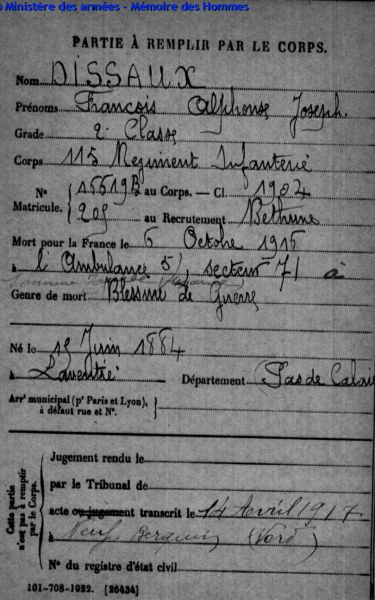 © Ministère des armées - Mémoire des Hommes
PARTIE À REMPLIR PAR LE CORPS.
Nom DISSAUX
Prénoms François Alphonse Joseph.
Grade 2e Classe
Corps 115 Regiment Infanterie
N° 15519B au Corps. — Cl. 1904
Matricule. 205 au Recrutement Bethune
Mort pour la France le 6 Octobre 1916
à l'Ambulance 5/, secteur 71 à
Genre de mort Blessure de Guerre
Né le 15 Juin 1884
à Laventie Département Pas de Calais
Arrt municipal (pr Paris et Lyon),
à défaut rue et N°.
Cette partie n'est pas à remplir par le Corps.
Jugement rendu le
par le Tribunal de
acte ou jugement transcrit le 14 Avril 1917.
à Neuf Berquin (Nord)
N° du registre d'état civil
101-708-1922. [26434]